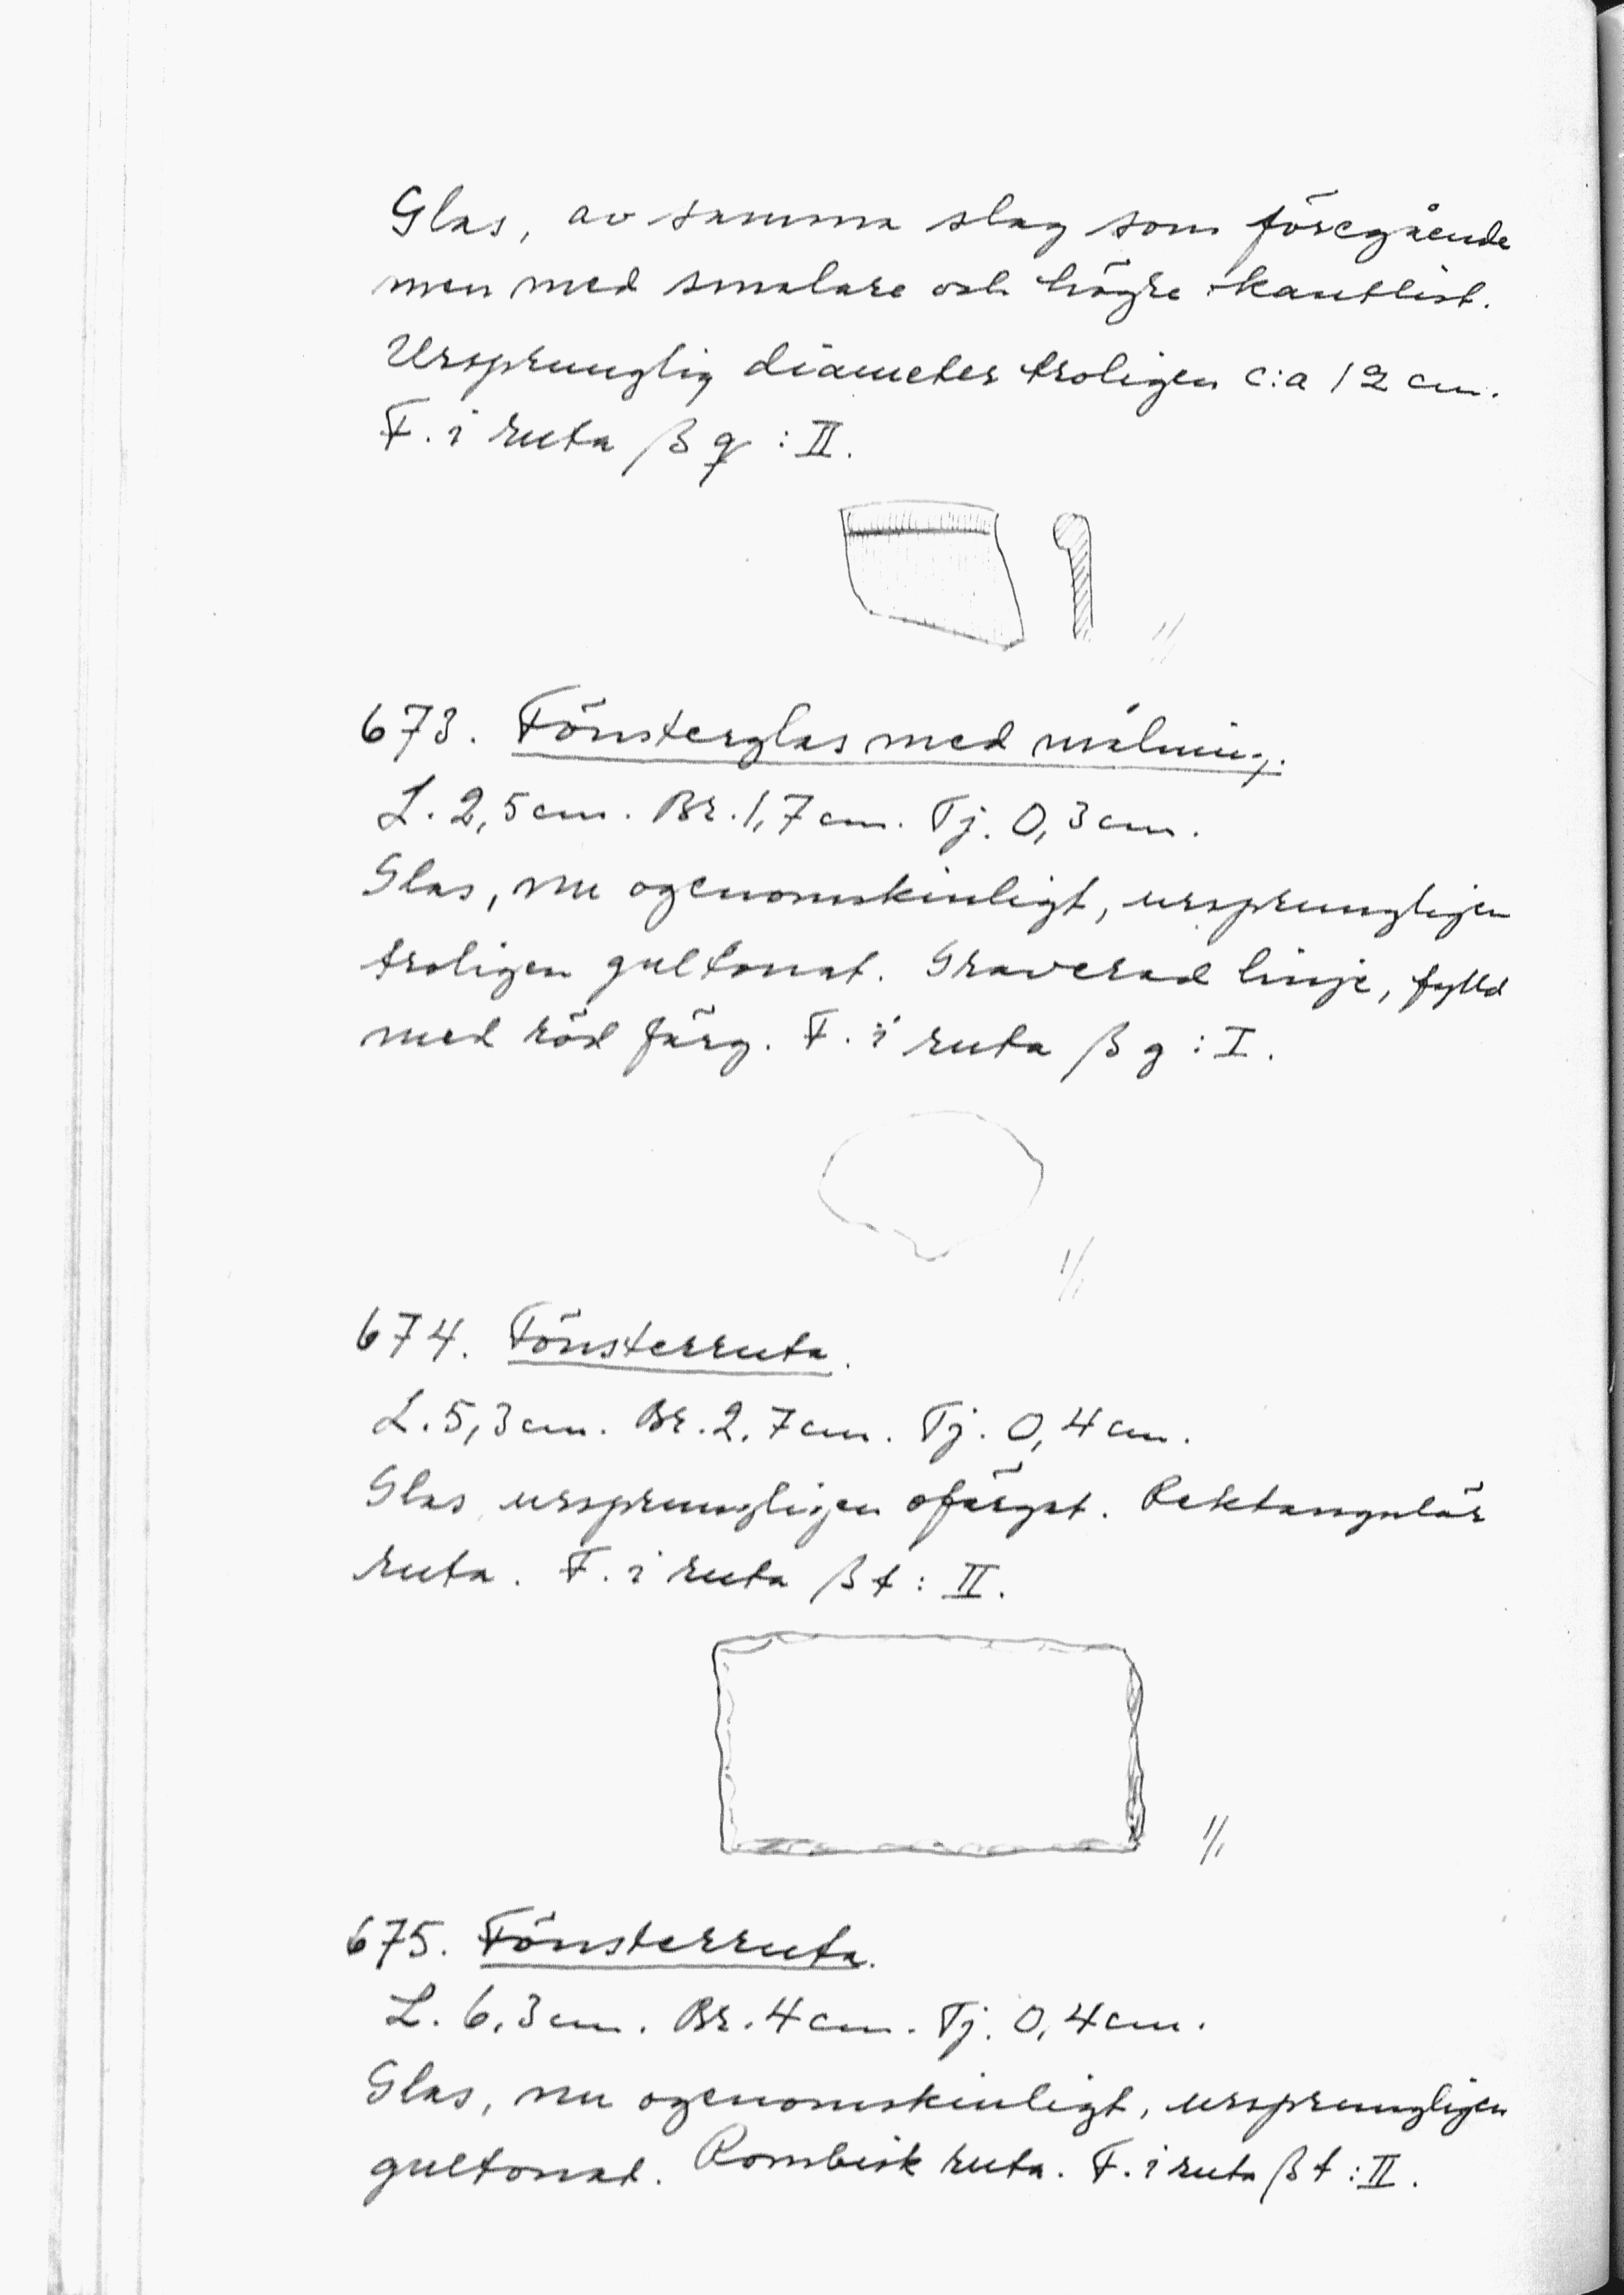 Glas, av samma slag som föregående
men med smalare och högre kantlist.
Ursprunglig diameter troligen c:a 12 cm.
F. i ruta β q : II.
1/1
673. Fönsterglas med målning.
L. 2,5 cm. Br. 1,7 cm. Tj. 0,3 cm.
Glas, nu ogenomskinligt, ursprungligen
troligen gultonat. Graverad linje, fylld
med röd färg. F. i ruta β g : I.
1/1
674. Fönsterruta.
L. 5,3 cm. Br. 2,7 cm. Tj. 0,4 cm.
Glas, ursprungligen ofärgat. Rektangulär
ruta. F. i ruta β t : II.
1/1
675. Fönsterruta.
L. 6,3 cm. Br. 4 cm. Tj. 0,4 cm.
Glas, nu ogenomskinligt, ursprungligen
gultonat. Rombisk ruta. F. i ruta β t : II.